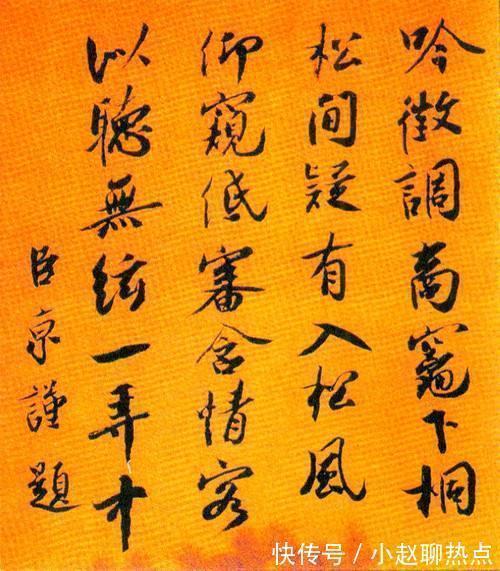 吟徵調商竈下桐
松間疑有入松風
仰窺低審含情客
似聽無絃一弄中
臣京謹題
快传号 / 小赵聊热点